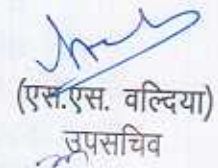 (एस.एस. वल्दिया)
उपसचिव